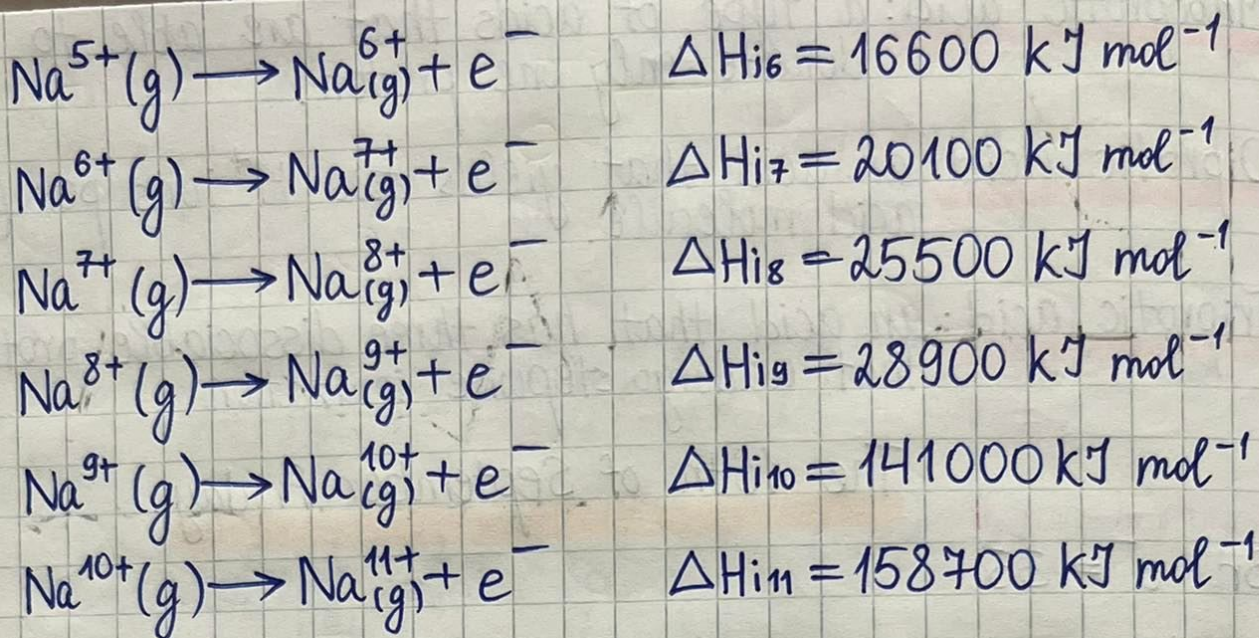 Na⁵⁺(g) → Na⁶⁺(g) + e⁻ ΔHi₆ = 16600 kJ mol⁻¹
Na⁶⁺(g) → Na⁷⁺(g) + e⁻ ΔHi₇ = 20100 kJ mol⁻¹
Na⁷⁺(g) → Na⁸⁺(g) + e⁻ ΔHi₈ = 25500 kJ mol⁻¹
Na⁸⁺(g) → Na⁹⁺(g) + e⁻ ΔHi₉ = 28900 kJ mol⁻¹
Na⁹⁺(g) → Na¹⁰⁺(g) + e⁻ ΔHi₁₀ = 141000 kJ mol⁻¹
Na¹⁰⁺(g) → Na¹¹⁺(g) + e⁻ ΔHi₁₁ = 158700 kJ mol⁻¹